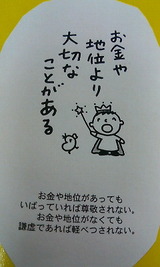 お金や
地位より
大切な
ことがある
お金や地位があっても
いばっていれば尊敬されない。
お金や地位がなくても
謙虚であれば軽べつされない。